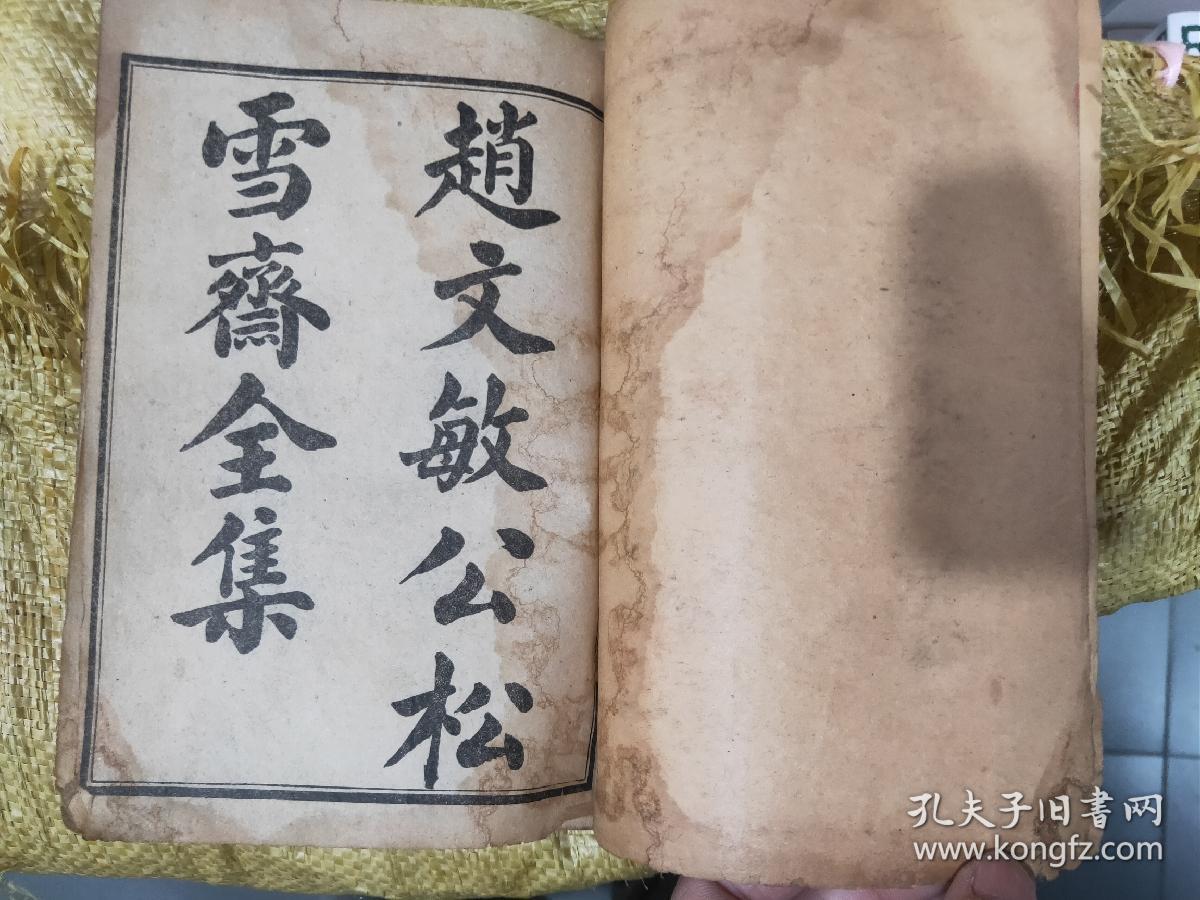 趙文敏公松
雪齋全集
孔夫子旧書网
www.kongfz.com